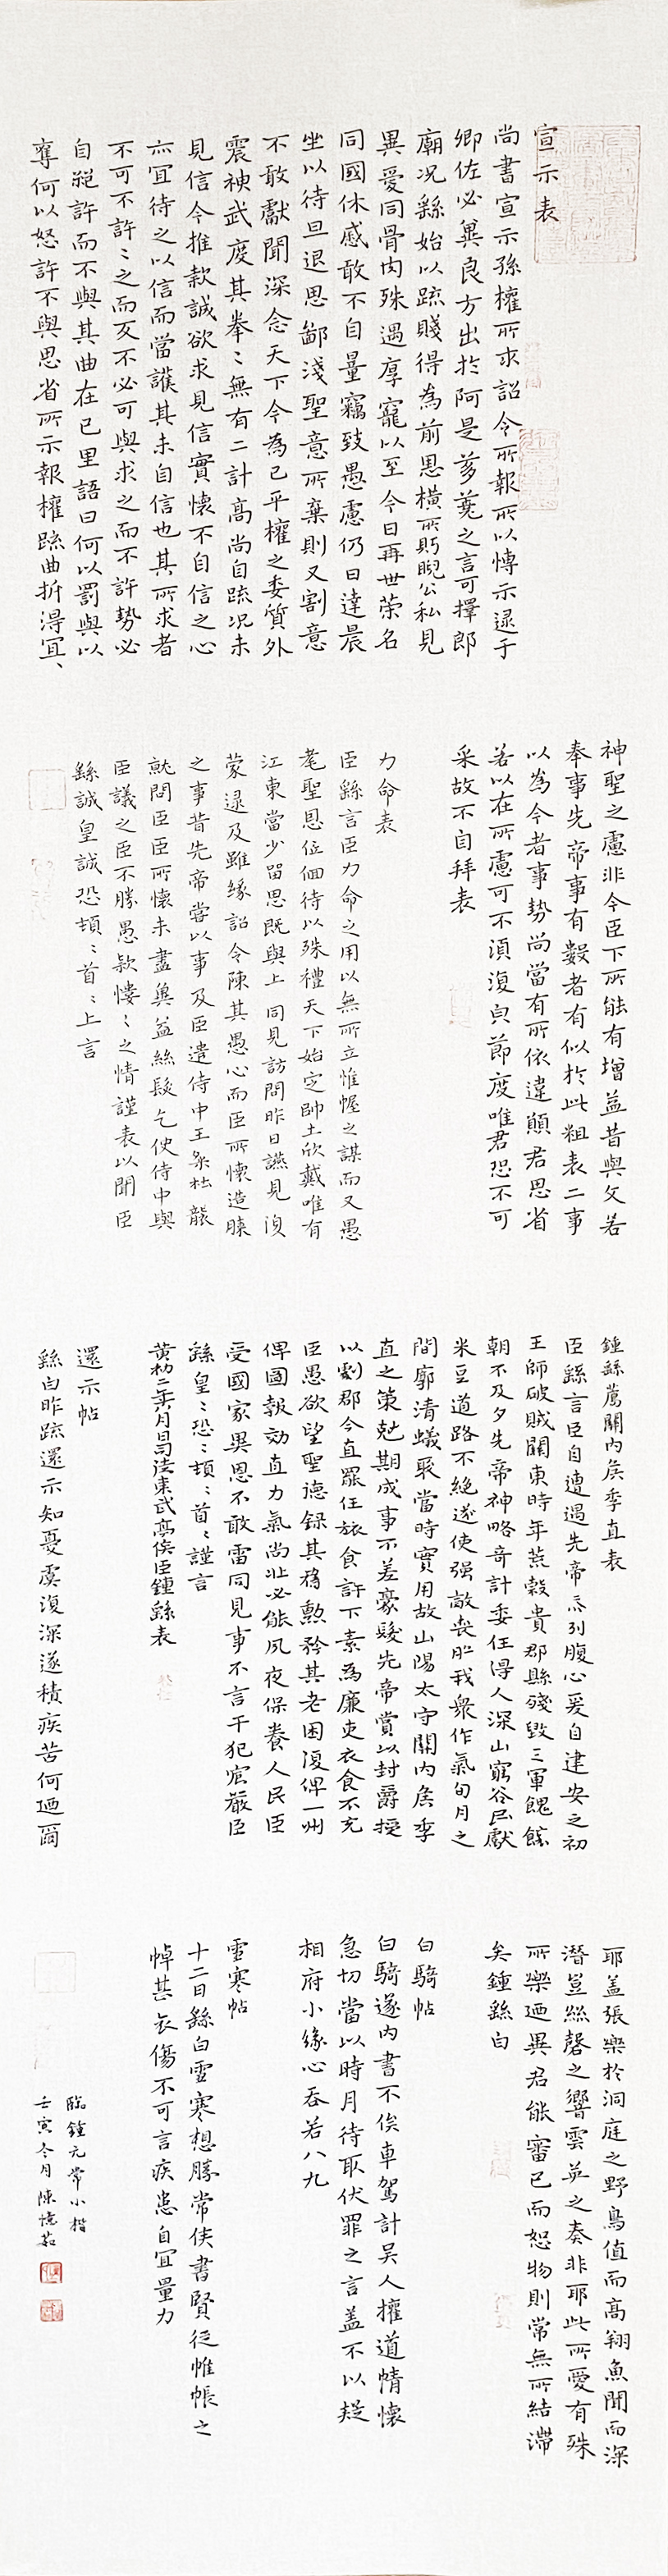 宣示表
尚書宣示孫權所求詔令所報所以博示逮于
卿佐必冀良方出於阿是芻蕘之言可擇郎
廟況繇始以疏賤得為前恩橫所眄睨公私見
異愛同骨肉殊遇厚寵以至今日再世榮名
同國休慼敢不自量竊致愚慮仍日達晨
坐以待旦退思鄙淺聖意所棄則又割意
不敢獻聞深念天下今為已平權之委質外
震神武度其拳〻無有二計高尚自疏況未
見信今推款誠欲求見信實懷不自信之心
亦宜待之以信而當護其未自信也其所求者
不可不許〻之而反不必可與求之而不許勢必
自絕許而不與其曲在己里語曰何以罰與以
奪何以怒許不與思省所示報權疏曲折得宜、
神聖之慮非今臣下所能有增益昔與文若
奉事先帝事有數者有似於此粗表二事
以為今者事勢尚當有所依違願君思省
若以在所慮可不須復貞節度唯君恐不可
采故不自拜表
力命表
臣繇言臣力命之用以無所立惟幄之謀而又愚
耄聖恩位個待以殊禮天下始定帥土欣戴唯有
江東當少留思既與上同見訪問昨日讌見湏
蒙逮及雖緣詔令陳其愚心而臣所懷造膝
之事昔先帝嘗以事及臣遣侍中王粲杜襲
就問臣臣所懷未盡冀益絲髮乞使侍中與
臣議之臣不勝愚款慺〻之情謹表以聞臣
繇誠皇誠恐頓〻首〻上言
鍾繇薦關內侯季直表
臣繇言臣自遭遇先帝忝列腹心爰自建安之初
王師破賊關東時年荒穀貴郡縣殘毀三軍餽饟
朝不及夕先帝神略奇計委任得人深山窮谷民獻
米豆道路不絕遂使强敵喪膽我衆作氣旬月之
間廓清蟻聚當時實用故山陽太守關內侯季
直之策剋期成事不差豪髮先帝賞以封爵授
以劇郡今直罷任旅食許下素為廉吏衣食不充
臣愚欲望聖德録其舊勲矜其老困復俾一州
俾圖報効直力氣尚壯必能夙夜保養人民臣
受國家異恩不敢雷同見事不言干犯宸嚴臣
繇皇〻恐〻頓〻首〻謹言
黃初二年八月日司徒東武亭侯臣鍾繇表
還示帖
繇白昨疏還示知憂虞復深遂積疾苦何迺爾
耶蓋張樂於洞庭之野鳥值而高翔魚聞而深
潛豈絲磬之響雲英之奏非耶此所愛有殊
所樂迺異君能審己而恕物則常無所結滯
矣鍾繇白
白騎帖
白騎遂內書不俟車駕計吳人權道情懷
急切當以時月待取伏罪之言蓋不以疑
相府小緣心吞若八九
雪寒帖
十二日繇白雪寒想勝常佳書賢從帷帳之
悼甚哀傷不可言疾患自宜量力
臨鍾元常小楷
壬寅冬月陳憶茹